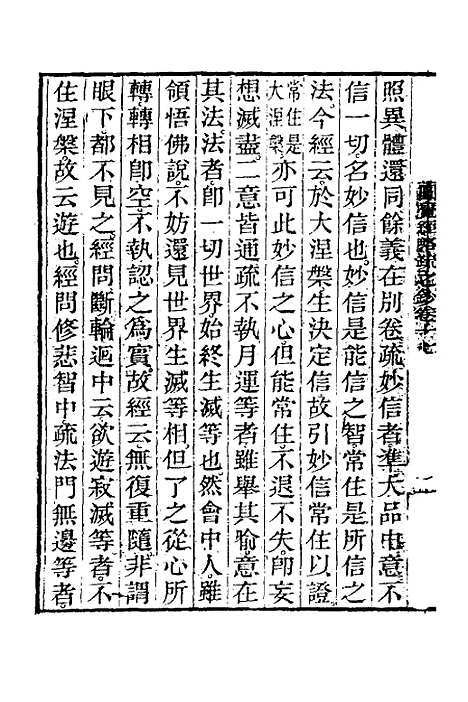 照異體還同餘義在別卷疏妙信者準大品中意不
信一切名妙信妙信是能信之智常住是所信之
法今經云於大涅槃生決定信故引妙信常住以證
常住是大涅槃亦可此妙信之心但能常住不退不失卽妄
想滅盡二意皆通疏不執月運等者雖舉其喻意在
其法法者卽一切世界始終生滅等也然會中人雖
領悟佛說不妨還見世界生滅等相但了之從心所
轉轉相卽空不執認之爲實故經云無復重隨非謂
眼下都不見之經問斷輪迴中云欲遊寂滅等者不
住涅槃故云遊也經問修悲智中疏法門無邊等者